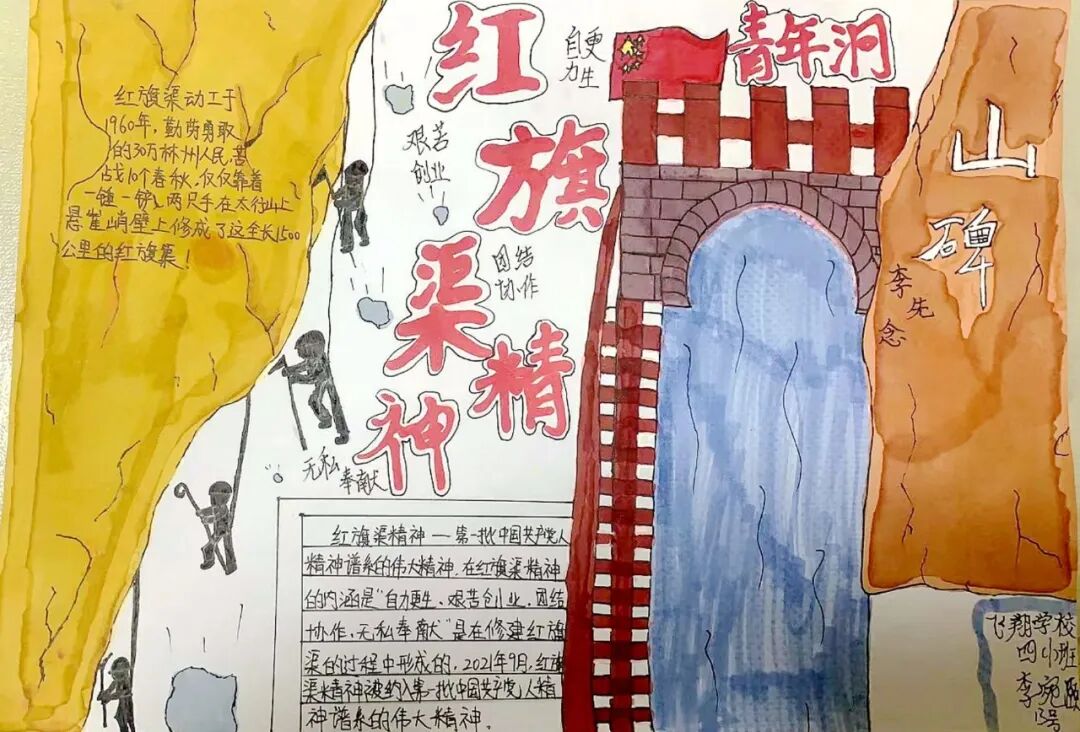 红旗渠精神
自更
力生
艰苦
创业
团结
协作
无私
奉献
青年洞
山
碑
李先
念
红旗渠动工于
1960年,勤劳勇敢
的30万林州人民,苦
战10个春秋,仅仅靠着
一锤一铲,两只手在太行山上
悬崖峭壁上修成了这全长1500
公里的红旗渠!
红旗渠精神—第一批中国共产党人
精神谱系的伟大精神.在红旗渠精神
的内涵是"自力更生、艰苦创业、团结
协作,无私奉献"是在修建红旗
渠的过程中形成的,2021年9月,红旗
渠精神被纳入第一批中国共产党人精
神谱系的伟大精神.
飞翔学校
四小班
李婉
13号